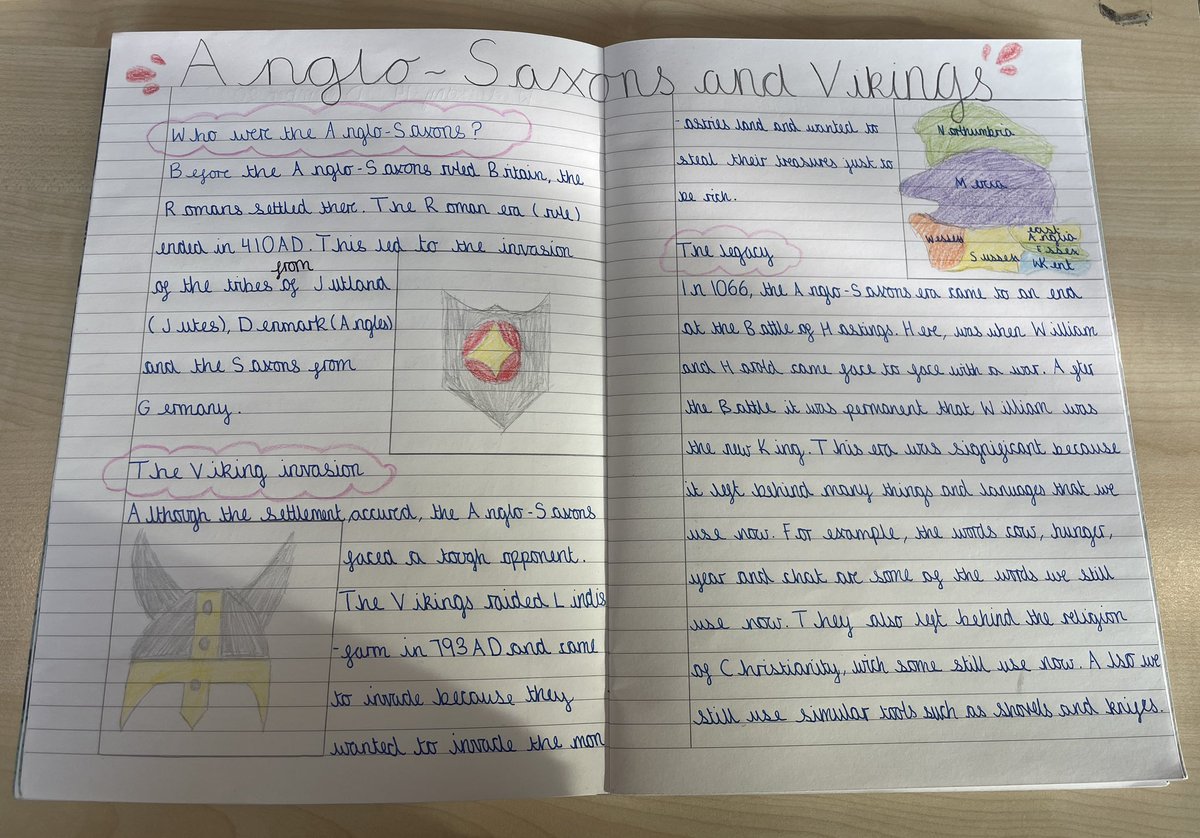 Anglo-Saxons and Vikings
Who were the Anglo-Saxons?
Before the Anglo-Saxons ruled Britain, the
Romans settled there. The Roman era (rule)
ended in 410AD. This led to the invasion
from
of the tribes of Jutland
(Jutes), Denmark (Angles)
and the Saxons from
Germany.
The Viking invasion
Although the settlement, accured, the Anglo-Saxons
faced a tough opponent.
The Vikings raided Lindis
-farm in 793AD and came
to invade because they
wanted to invade the mon
-astries land and wanted to
steal their treasures just to
be rich.
Northumbria
Mercia
Wessex
Sussex
east
Anglia
Essex
Kent
The legacy
In 1066, the Anglo-Saxons era came to an end
at the Battle of Hastings. Here, was when William
and Harold came face to face with a war. After
the Battle it was permanent that William was
the new King. This era was significant because
it left behind many things and lanuages that we
use now. For example, the words cow, hunger,
year and chat are some of the words we still
use now. They also left behind the religion
of Christianity, wich some still use now. Also we
still use simular tools such as shovels and knifes.